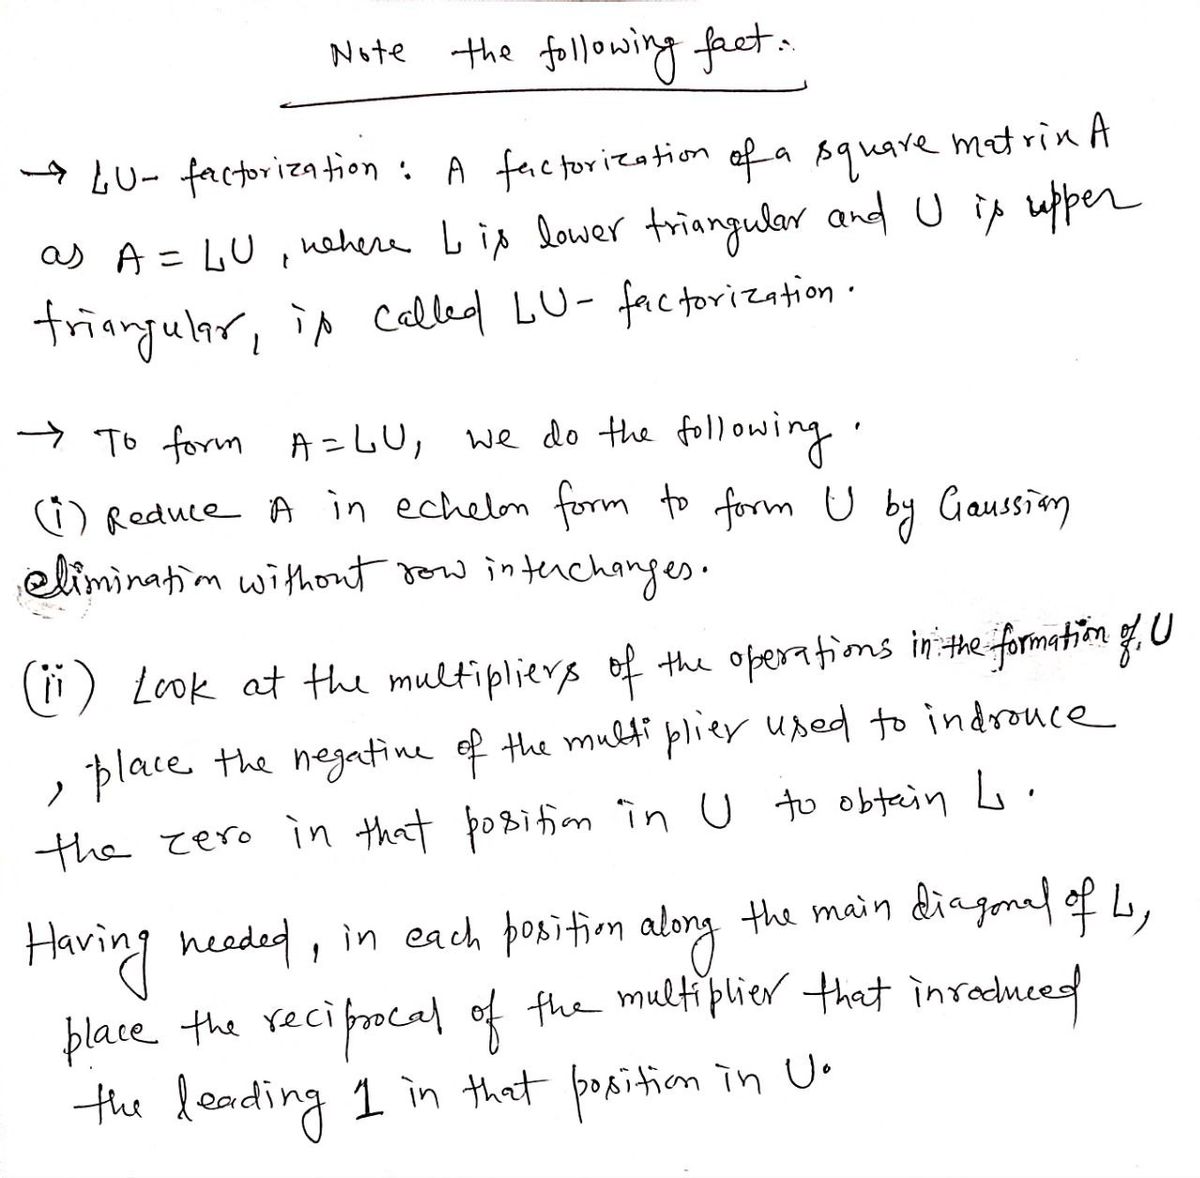 Note the following fact:
→ LU- factorization : A factorization of a square matrix A
as A = LU , where L is lower triangular and U is upper
triangular, is called LU- factorization .
→ To form A=LU, we do the following .
(i) Reduce A in echelon form to form U by Gaussian
elimination without row interchanges.
(ii) Look at the multipliers of the operations in the formation of U
, place the negative of the multiplier used to indrouce
the zero in that position in U to obtain L .
Having needed , in each position along the main diagonal of L,
place the reciprocal of the multiplier that inroduced
the leading 1 in that position in U.